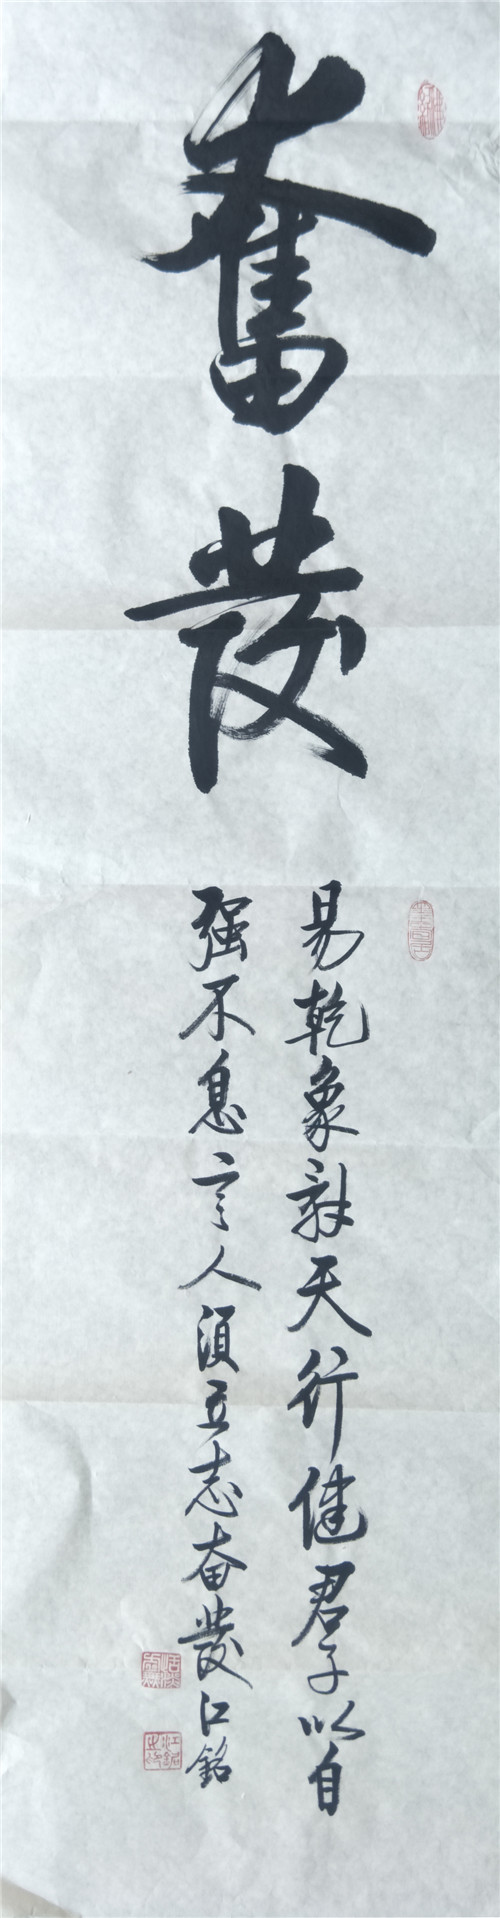 奮發
易乾象辞天行健君子以自
强不息言人須立志奋發江銘
江銘